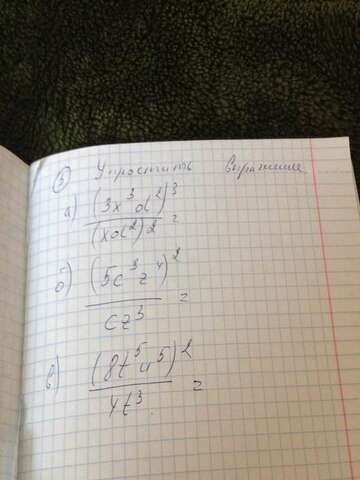 ③ Упростить выражение
а) (3x³d²)³ / (xd²)² =
б) (5c³z⁴)² / cz³ =
в) (8t⁵u⁵)² / 4t³ =